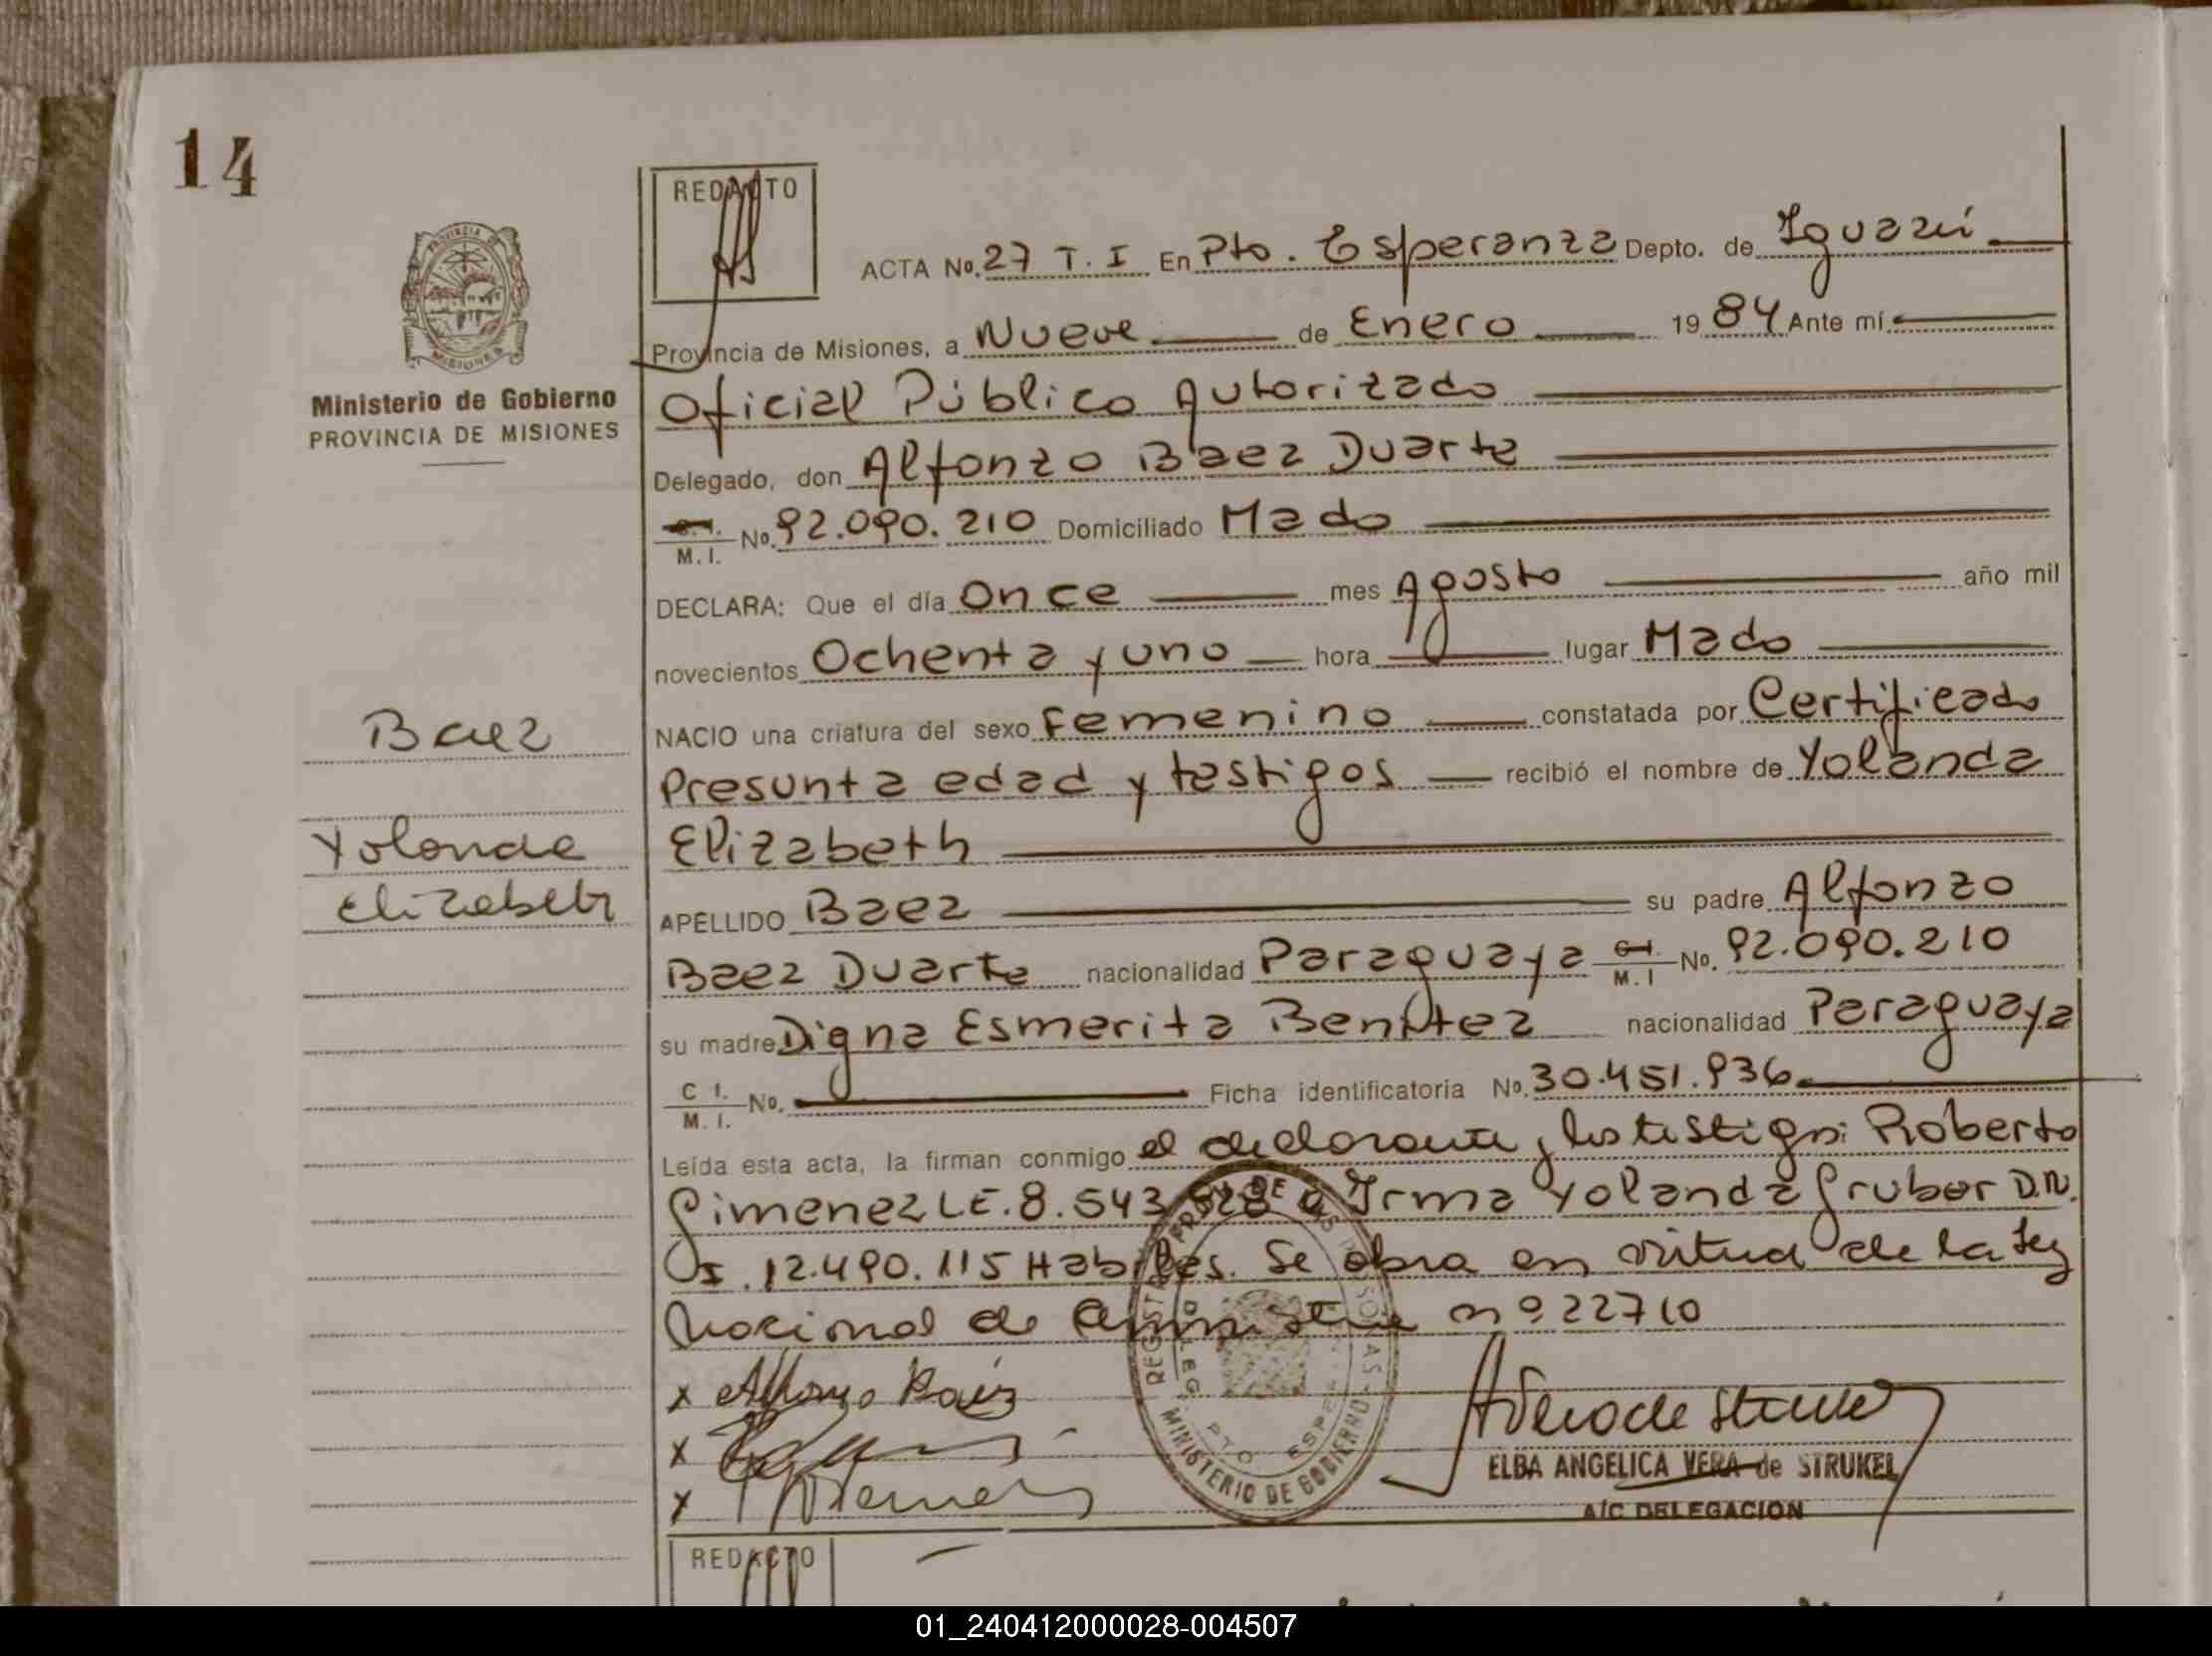 14
REDACTO
ACTA No. 27 T. I En Pto. Esperanza Depto. de Iguazú
PROVINCIA DE
MISIONES
Provincia de Misiones, a Nueve de Enero 1984 Ante mí
Ministerio de Gobierno
PROVINCIA DE MISIONES
Oficial Público Autorizado
Delegado, don Alfonzo Baez Duarte
C.I. M.I. No. 92.090.210 Domiciliado Mado
DECLARA: Que el día Once mes Agosto año mil
novecientos Ochenta y uno hora lugar Mado
Baez
NACIO una criatura del sexo Femenino constatada por Certificado
Presunta edad y testigos recibió el nombre de Yolanda
Yolanda
Elizabeth
Elizabeth
APELLIDO Baez su padre Alfonzo
Baez Duarte nacionalidad Paraguaya C.I. M.I No. 92.090.210
su madre Digna Esmerita Benitez nacionalidad Paraguaya
C I. M. I. No. Ficha identificatoria No. 30.451.936
Leída esta acta, la firman conmigo el declarante y los testigos: Roberto
Gimenez LE. 8.543.528 e Irma Yolanda Gruber D.N.
I. 12.490.115 Habiles. Se obra en virtud de la Ley
Nacional de Amnistia nº 22710
x Alfonzo Baez
x
x
REGISTRO PROV. DE LAS PERSONAS
DELEG. PTO ESPE
MINISTERIO DE GOBIERNO
A Vera de Strukel
ELBA ANGELICA VERA de STRUKEL
A/C DELEGACION
REDACTO
01_240412000028-004507